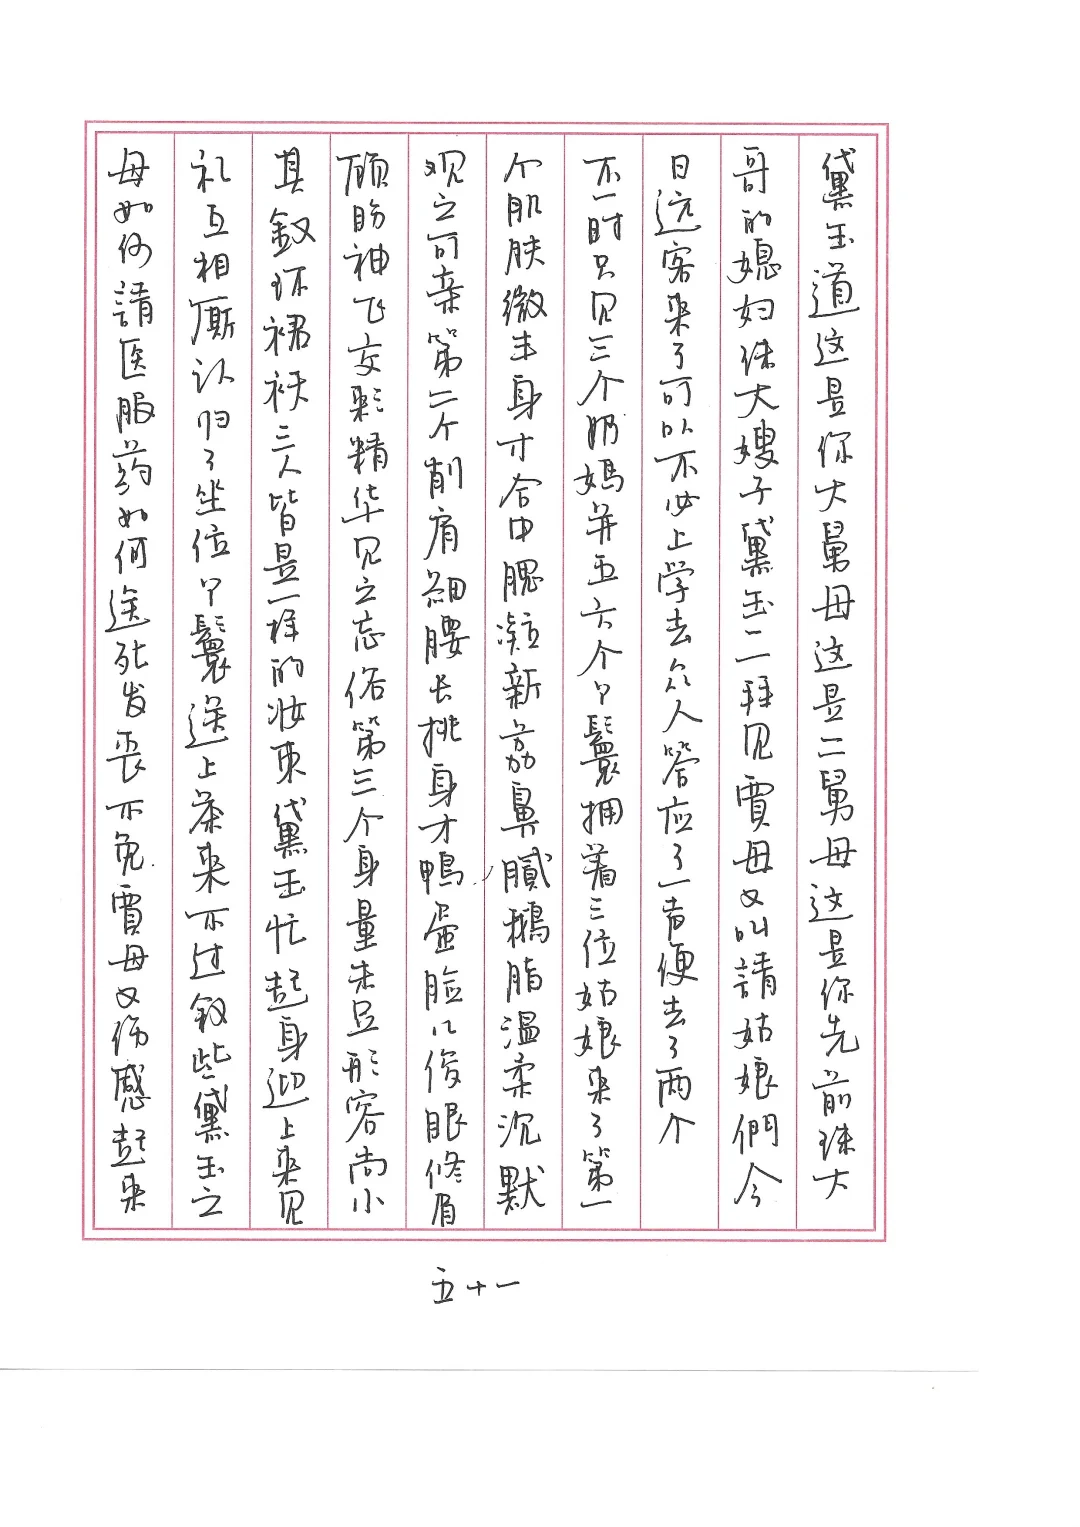 黛玉道这是你大舅母这是二舅母这是你先前珠大
哥的媳妇珠大嫂子黛玉一一拜见賈母又叫請姑娘們今
日远客来了可以不必上学去众人答应了一声便去了两个
不一时只见三个奶媽并五六个丫鬟拥着三位姑娘来了第一
个肌肤微丰身才合中腮凝新荔鼻膩鵝脂温柔沉默
观之可亲第二个削肩細腰长挑身才鴨蛋脸儿俊眼修眉
顾盼神飞文彩精华见之忘俗第三个身量未足形容尚小
其釵环裙袄三人皆是一样的妆束黛玉忙起身迎上来见
礼互相厮认归了坐位丫鬟送上茶来不过叙些黛玉之
母如何請医服药如何送死发丧不免賈母又伤感起来
五十一